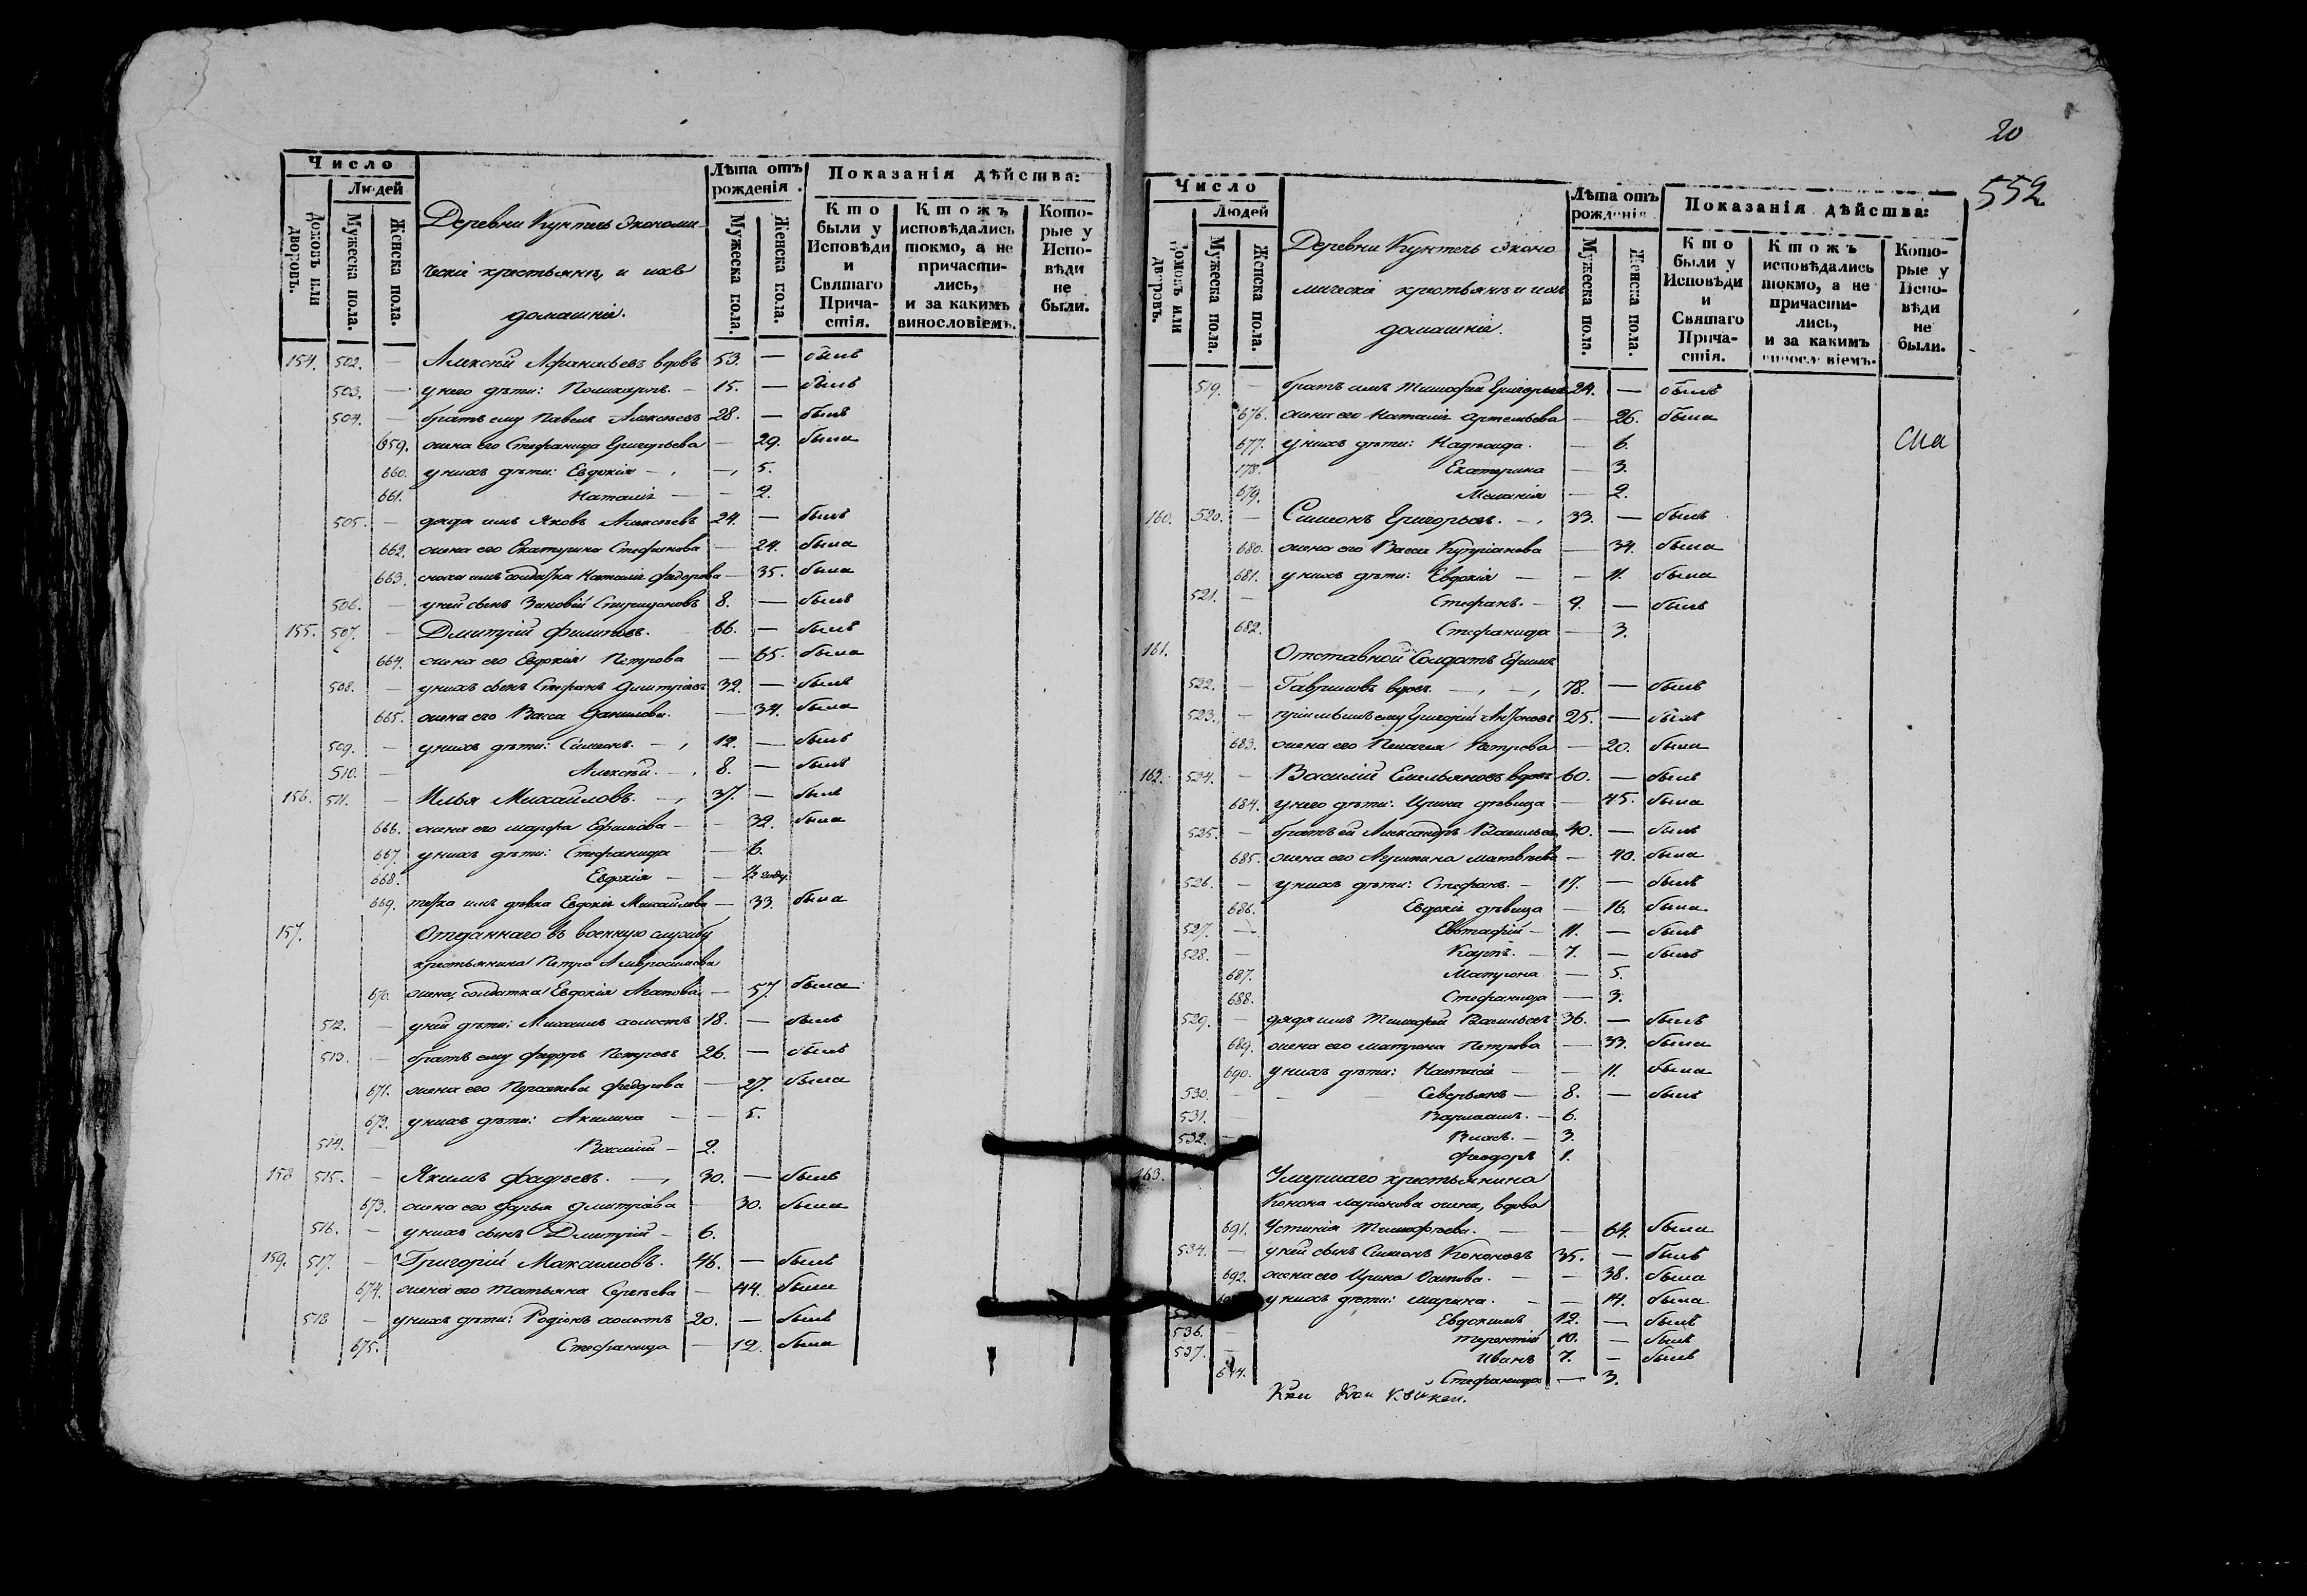 Число
Людей
Домовъ или дворовъ.
Мужеска пола.
Женска пола.
Деревни Куктечь Экономи-
ческiе крестьянъ, и ихъ
домашнiе.
Лѣта отъ рожденiя.
Мужеска пола.
Женска пола.
Показанiя дѣйства:
Кто были у Исповѣди и Святаго Прича-стiя.
Ктожъ исповѣдались токмо, а не причасти-лись, и за какимъ винословiемъ.
Кото-рые у Испо-вѣди не были.
154. 502. — Алексѣй Афанасьевъ вдовъ 53. — былъ
503. — у него дѣти: Поликарпъ — 15. — былъ
504. — братъ ему Павелъ Алексѣевъ 28. — былъ
659. жена его Стефанида Григорьева — 29. была
660. у нихъ дѣти: Евдокiя — 5.
661. Наталiя — 2.
505. — дядя имъ Яковъ Алексѣевъ 24. — былъ
662. жена его Екатерина Стефанова — 24. была
663. сноха имъ солдатка Наталiя Федорова — 35. была
506. — у ней сынъ Зиновiй Спиридоновъ 8. — былъ
155. 507. — Дмитрiй Филиповъ. 66. — былъ
664. жена его Евдокiя Петрова — 65. была
508. — у нихъ сынъ Стефанъ Дмитрiевъ 32. — былъ
665. жена его Васса Данилова. — 34. была
509. — у нихъ дѣти: Симеонъ. — 12. — былъ
510. — Алексѣй. — 8. — былъ
156. 511. — Илья Михайловъ. — 37. — былъ
666. жена его Марфа Ефимова — 32. была
667. у нихъ дѣти: Стефанида — 6.
668. Евдокiя — ½ году.
669. тетка имъ дѣвка Евдокiя Михайлова — 33. была
157. Отданнаго въ военную службу
крестьянина Петра Амвросимова
670. жена, солдатка Евдокiя Агапова — 57. была
512. — у ней дѣти: Михаилъ холостъ 18. — былъ
513. — братъ ему Федоръ Петровъ 26. — былъ
671. жена его Федорова — 27. была
672. у нихъ дѣти: Акилина — 5.
514. — Василiй — 2.
158 515. — Якимъ Фадѣевъ. — 30. — былъ
673. жена его Дарья Дмитрiева — 30. была
516. — у нихъ сынъ Дмитрiй — 6.
159. 517. — Григорiй Максимовъ. 46. — былъ
674. жена его Татьяна Сергѣева — 44. была
518 — у нихъ дѣти: Родiонъ холостъ 20. — былъ
675. Стефанида — 12. была
20
552
Число
Людей
Домовъ или дворовъ.
Мужеска пола.
Женска пола.
Деревни Куктечь Эконо
мическiе крестьянъ и ихъ
домашнiе.
Лѣта отъ рожденiя
Мужеска пола.
Женска пола.
Показанiя дѣйства:
Кто были у Исповѣди и Святаго Прича-стiя.
Ктожъ исповѣдались токмо, а не причасти-лись, и за какимъ винословiемъ.
Кото-рые у Испо-вѣди не были.
519. — братъ имъ Тимофей Григорьевъ 24. — былъ
676. жена его Наталiя Артемьева — 26. была
677. у нихъ дѣти: Надежда. — 6.
178. Екатерина — 3.
679. Меланiя — 2.
160. 520. — Симеонъ Григорьевъ. — 33. — былъ
680. жена его Васса Купрiанова — 34. была
681. у нихъ дѣти: Евдокiя — 11. была
521. — Стефанъ. — 9. — былъ
682. Стефанида — 3.
161. Отставной Солдатъ Ефимъ
522. — Гавриловъ вдовъ. — 78. — былъ
523. — прiемышъ ему Григорiй Антоновъ 25. — былъ
683. жена его Пелагея Петрова — 20. была
162. 534. — Василiй Емельяновъ вдовъ 60. — былъ
684. у него дѣти: Ирина дѣвица — 45. была
525. — братъ ей Александръ Васильевъ 40. — былъ
685. жена его Акилина Матвѣева — 40. была
526. — у нихъ дѣти: Стефанъ. — 17. — былъ
686. Евдокiя дѣвица — 16. была
527. — Евстафiй — 11. — былъ
528. — Карпъ. — 7. — былъ
687. Матрона — 5.
688. Стефанида — 3.
529. — дядя имъ Тимофей Васильевъ 36. — былъ
689. жена его Матрона Петрова — 33. была
690. у нихъ дѣти: Настасiя — 11. была
530. — Северьянъ — 8. — былъ
531. — Варлаамъ. — 6.
532. — Власъ. — 3.
Феодоръ 1.
163. Умершаго крестьянина
Конона Ларiонова жена, вдова
691. Устинiя Тимофѣева. — 64. была
534. — у ней сынъ Симеонъ Кононовъ 35. — былъ
692. жена его Ирина Осипова. — 38. была
у нихъ дѣти: Марина. — 14. была
Евдокимъ 12. — былъ
536. — Терентiй 10. — былъ
537. — Иванъ 7. — былъ
694. Стефанида — 3.